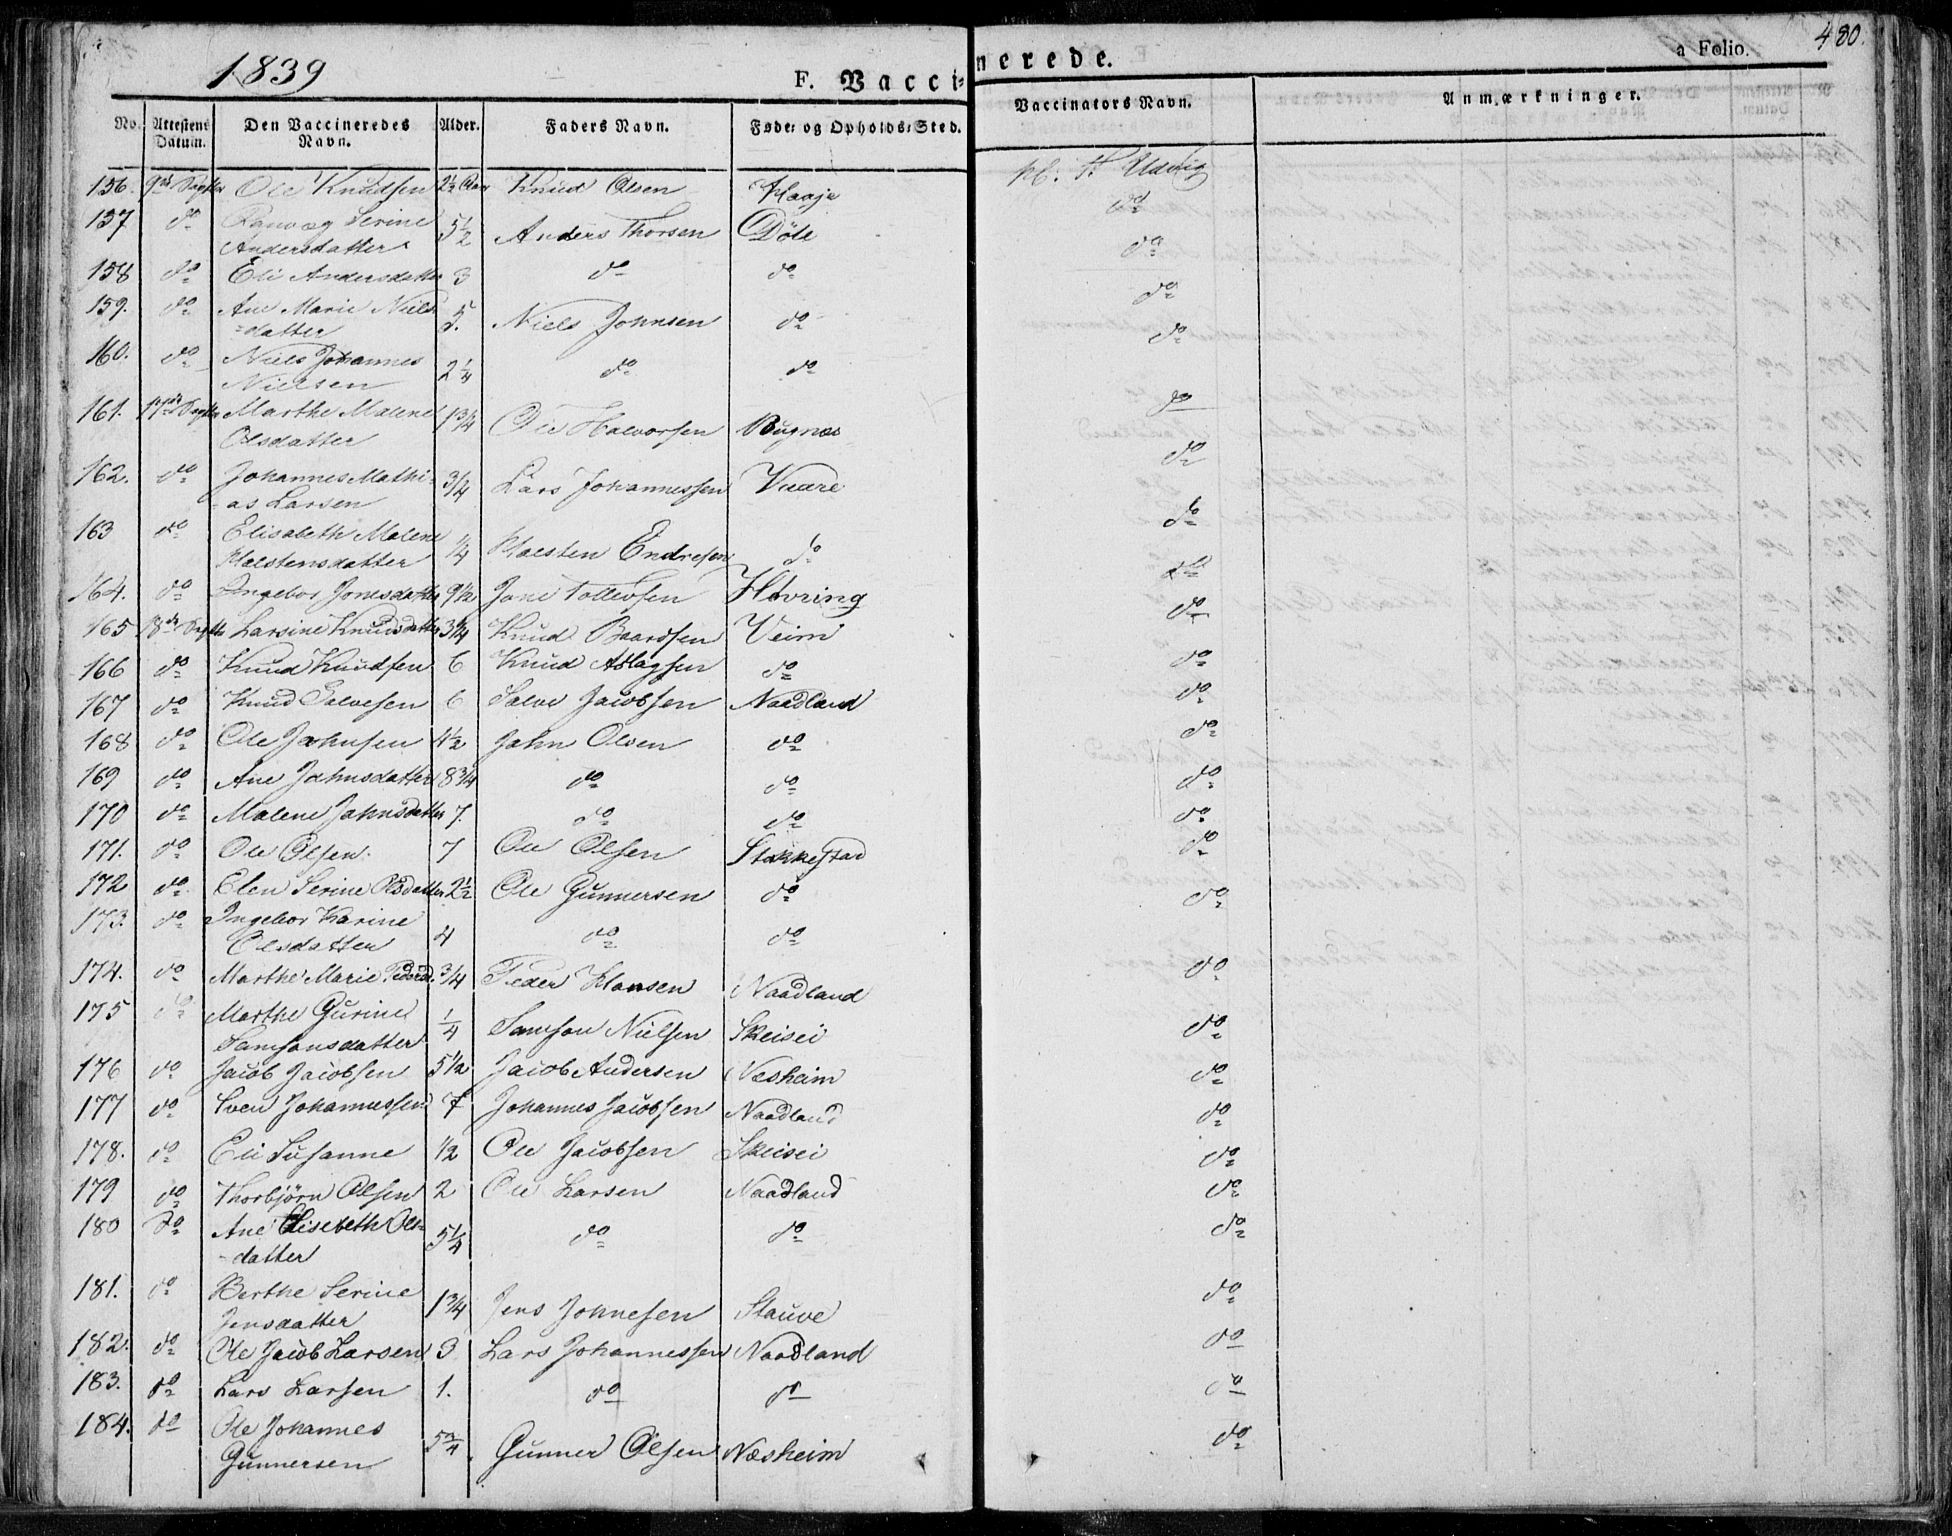 1839
F. Vaccinerede.
a Folio. 480.
No. Attestens Datum. Den Vaccineredes Navn. Alder. Faders Navn. Føde- og Opholds-Sted. Vaccinators Navn. Anmærkninger.
156. 9de Ole Knudsen 2½ Knud Olsen Haaje
157 do Serine
Andersdatter 5½ Anders Thorsen Döle do
158 do Eli Andersdatter 3 do do do
159. do Ane Marie Niels
-datter 5. Niels Johnsen do do
160. do Niels Johannes
Nielsen 2¼ do do do
161. 17de Marthe Malene
Olsdatter 1¾ Ole Halvorsen Bugnæs do
162. do Johannes Mathi-
as Larsen ¾ Lars Johannessen Vaare do
163 do Elisabeth Malene
Halstensdatter ¼ Halsten Endresen do do
164. do Ingebor Jonesdatter 9½ Jone Tollevsen Hovring do
165 18de Larsine Knudsdatter 3¾ Knud Baardsen Veim do
166 do Knud Knudsen 6 Knud Aslagsen do do
167 do Knud Salvesen 6 Salve Jacobsen Naadland do
168 do Ole Jahnsen 4½ Jahn Olsen do do
169 do Ane Jahnsdatter 8¾ do do do
170 do Malene Jahnsdatter 7. do do do
171. do Ole Olsen. 7 Ole Olsen Stakkestad do
172 do Elen Serine Olsdatter 2½ Ole Gunnersen do do
173. do Ingebor Karine
Olsdatter 4 do do
174. do Marthe Marie Pedersd. ¾ Peder Hansen Naadland do
175 do Marthe Gurine
Samsonsdatter ¼ Samson Nielsen Skeisei do
176 do Jacob Jacobsen 5½ Jacob Andersen Næsheim do
177 do Sven Johannessen 7 Johannes Jacobsen Naadland do
178. do Eli Susanne ½ Ole Jacobsen Skeisei do
179 do Thorbjörn Olsen 2 Ole Larsen Naadland do
180 do Ane Elisebeth Ols-
-datter 5¼ do do do
181. do Berthe Serine
Jensdatter 1¾ Jens Johnesen Stauve do
182. do Ole Jacob Larsen 3 Lars Johannessen Naadland do
183. do Lars Larsen 1. do do do
184. do Ole Johannes
Gunnersen 5¾ Gunner Olsen Næsheim do